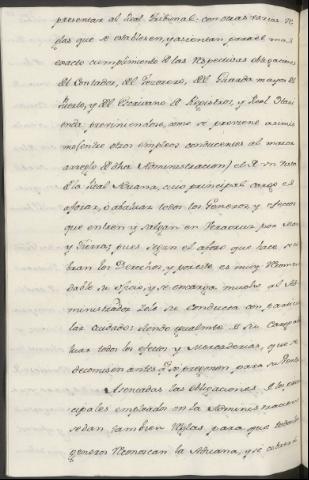 presentar al Real Tribunal con otras varias Re
glas que se establesen, y asientan para el mas
exacto cumplimiento de las respectivas obligaciones
del Contador, del Tesorero, del Guarda mayor del
Puerto, y del Escrivano de Registros, y Real Hazi
enda previniendose, como se previene asimis
mo (entre otros empleos conducentes al mayor
arreglo de dha Administracion) el de Vista
de la Real Aduana, cuio principal cargo es el
aforar, o abaluar todos los Generos, y efectos
que entren y salgan en Veracruz por Mar
y Tierra, pues segun el aforo que hace se co
bran los Derechos, y por esto es muy Recomen
dable su oficio, y se encarga mucho al Ad
ministrador zele se conduzca con particu
lar cuidado siendo igualmte de su cargo aba
luar todos los efectos y Mercaderias, que se
decomisen antes qe se pregonen para su Venta
Asentadas las Obligaciones de los prin
cipales empleados en la Administracion
se dan tambien Reglas para que todos los
generos reconoscan la Aduana, y se cobren los